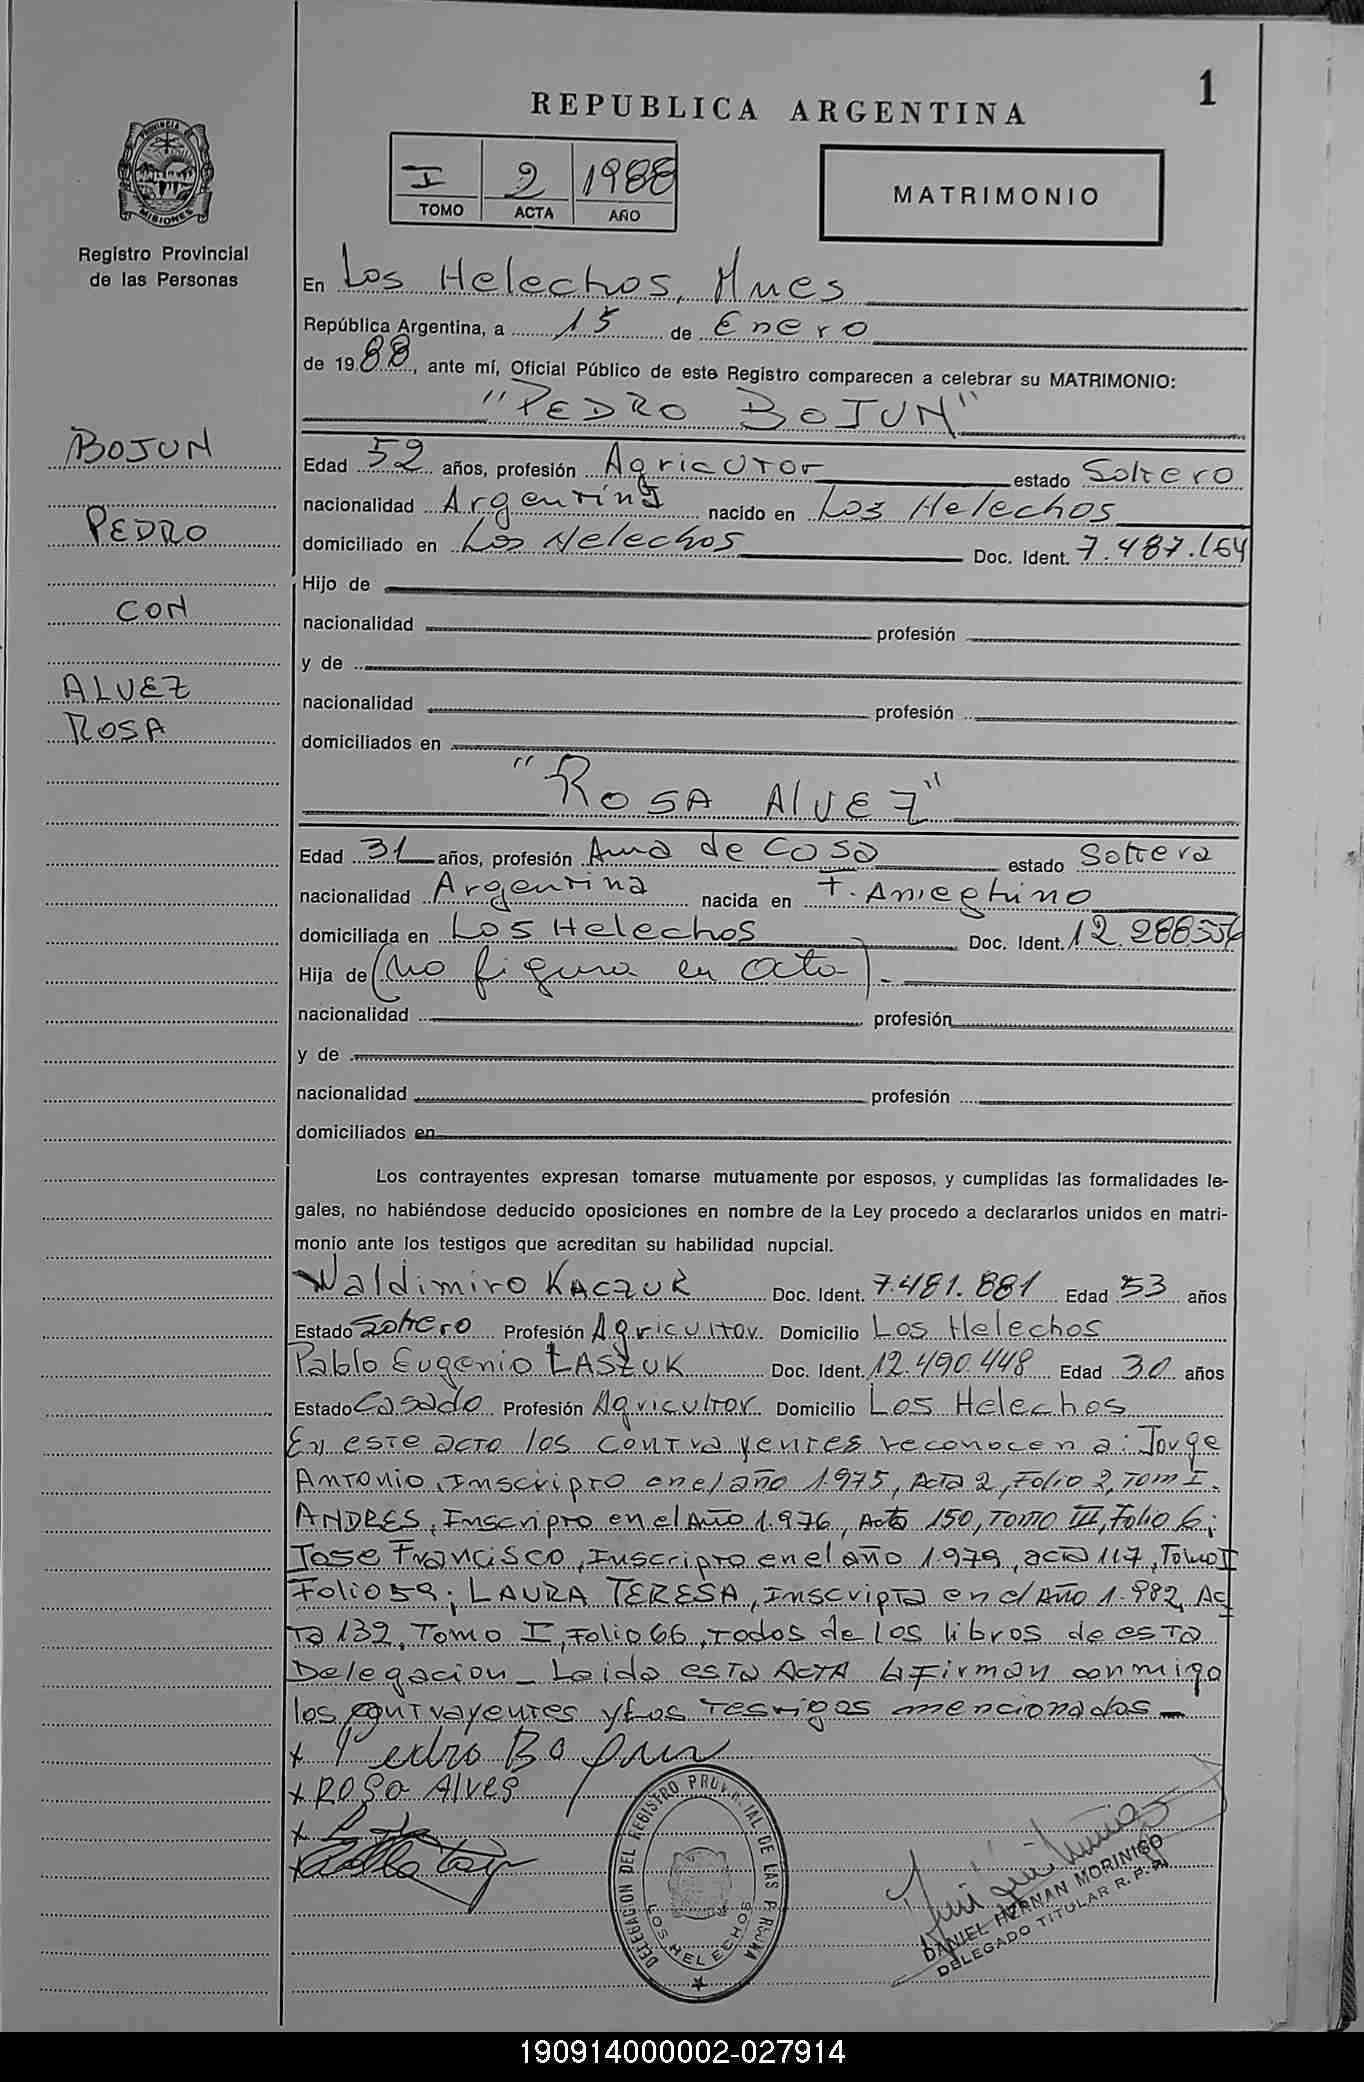 1
REPUBLICA ARGENTINA
I 2 1988
TOMO ACTA AÑO
MATRIMONIO
PROVINCIA DE
MISIONES
Registro Provincial
de las Personas
En Los Helechos, Mnes
República Argentina, a 15 de Enero
de 1988, ante mí, Oficial Público de este Registro comparecen a celebrar su MATRIMONIO:
"PEDRO BOJUN"
BOJUN
PEDRO
CON
ALVEZ
ROSA
Edad 52 años, profesión Agricutor estado Soltero
nacionalidad Argentina nacido en Los Helechos
domiciliado en Los Helechos Doc. Ident. 7.487.164
Hijo de
nacionalidad profesión
y de
nacionalidad profesión
domiciliados en
"ROSA AlVEZ"
Edad 31 años, profesión Ama de Casa estado Soltera
nacionalidad Argentina nacida en F. Ameghino
domiciliada en Los Helechos Doc. Ident. 12.288556
Hija de (No figura en acta).-
nacionalidad profesión
y de
nacionalidad profesión
domiciliados en
Los contrayentes expresan tomarse mutuamente por esposos, y cumplidas las formalidades le-
gales, no habiéndose deducido oposiciones en nombre de la Ley procedo a declararlos unidos en matri-
monio ante los testigos que acreditan su habilidad nupcial.
Waldimiro KACZUK Doc. Ident. 7.481.881 Edad 53 años
Estado Soltero Profesión Agricultor Domicilio Los Helechos
Pablo Eugenio LASZUK Doc. Ident. 12.490.448 Edad 30 años
Estado Casado Profesión Agricultor Domicilio Los Helechos
En este acto los contrayentes reconocen a: Jorge
Antonio, Inscripto en el año 1.975, Acta 2, Folio 2, Tom I.
ANDRES, Inscripto en el Año 1.976, Acta 150, Tomo III, Folio 6;
Jose Francisco, Inscripto en el año 1.979, acta 117, Tomo I
Folio 59; LAURA TERESA, Inscripta en el Año 1.982, Ac
ta 132, Tomo I, Folio 66, todos de los libros de esta
Delegacion_ Leida esta ACTA la Firman conmigo
los contrayentes y los testigos mencionados_
x Pedro Bojun
x Rosa Alves
x
x
DELEGACION DEL REGISTRO PROV. IAL DE LAS PERSONA
LOS HELECHOS
DANIEL HERNAN MORINIGO
DELEGADO TITULAR R.P.P.
190914000002-027914